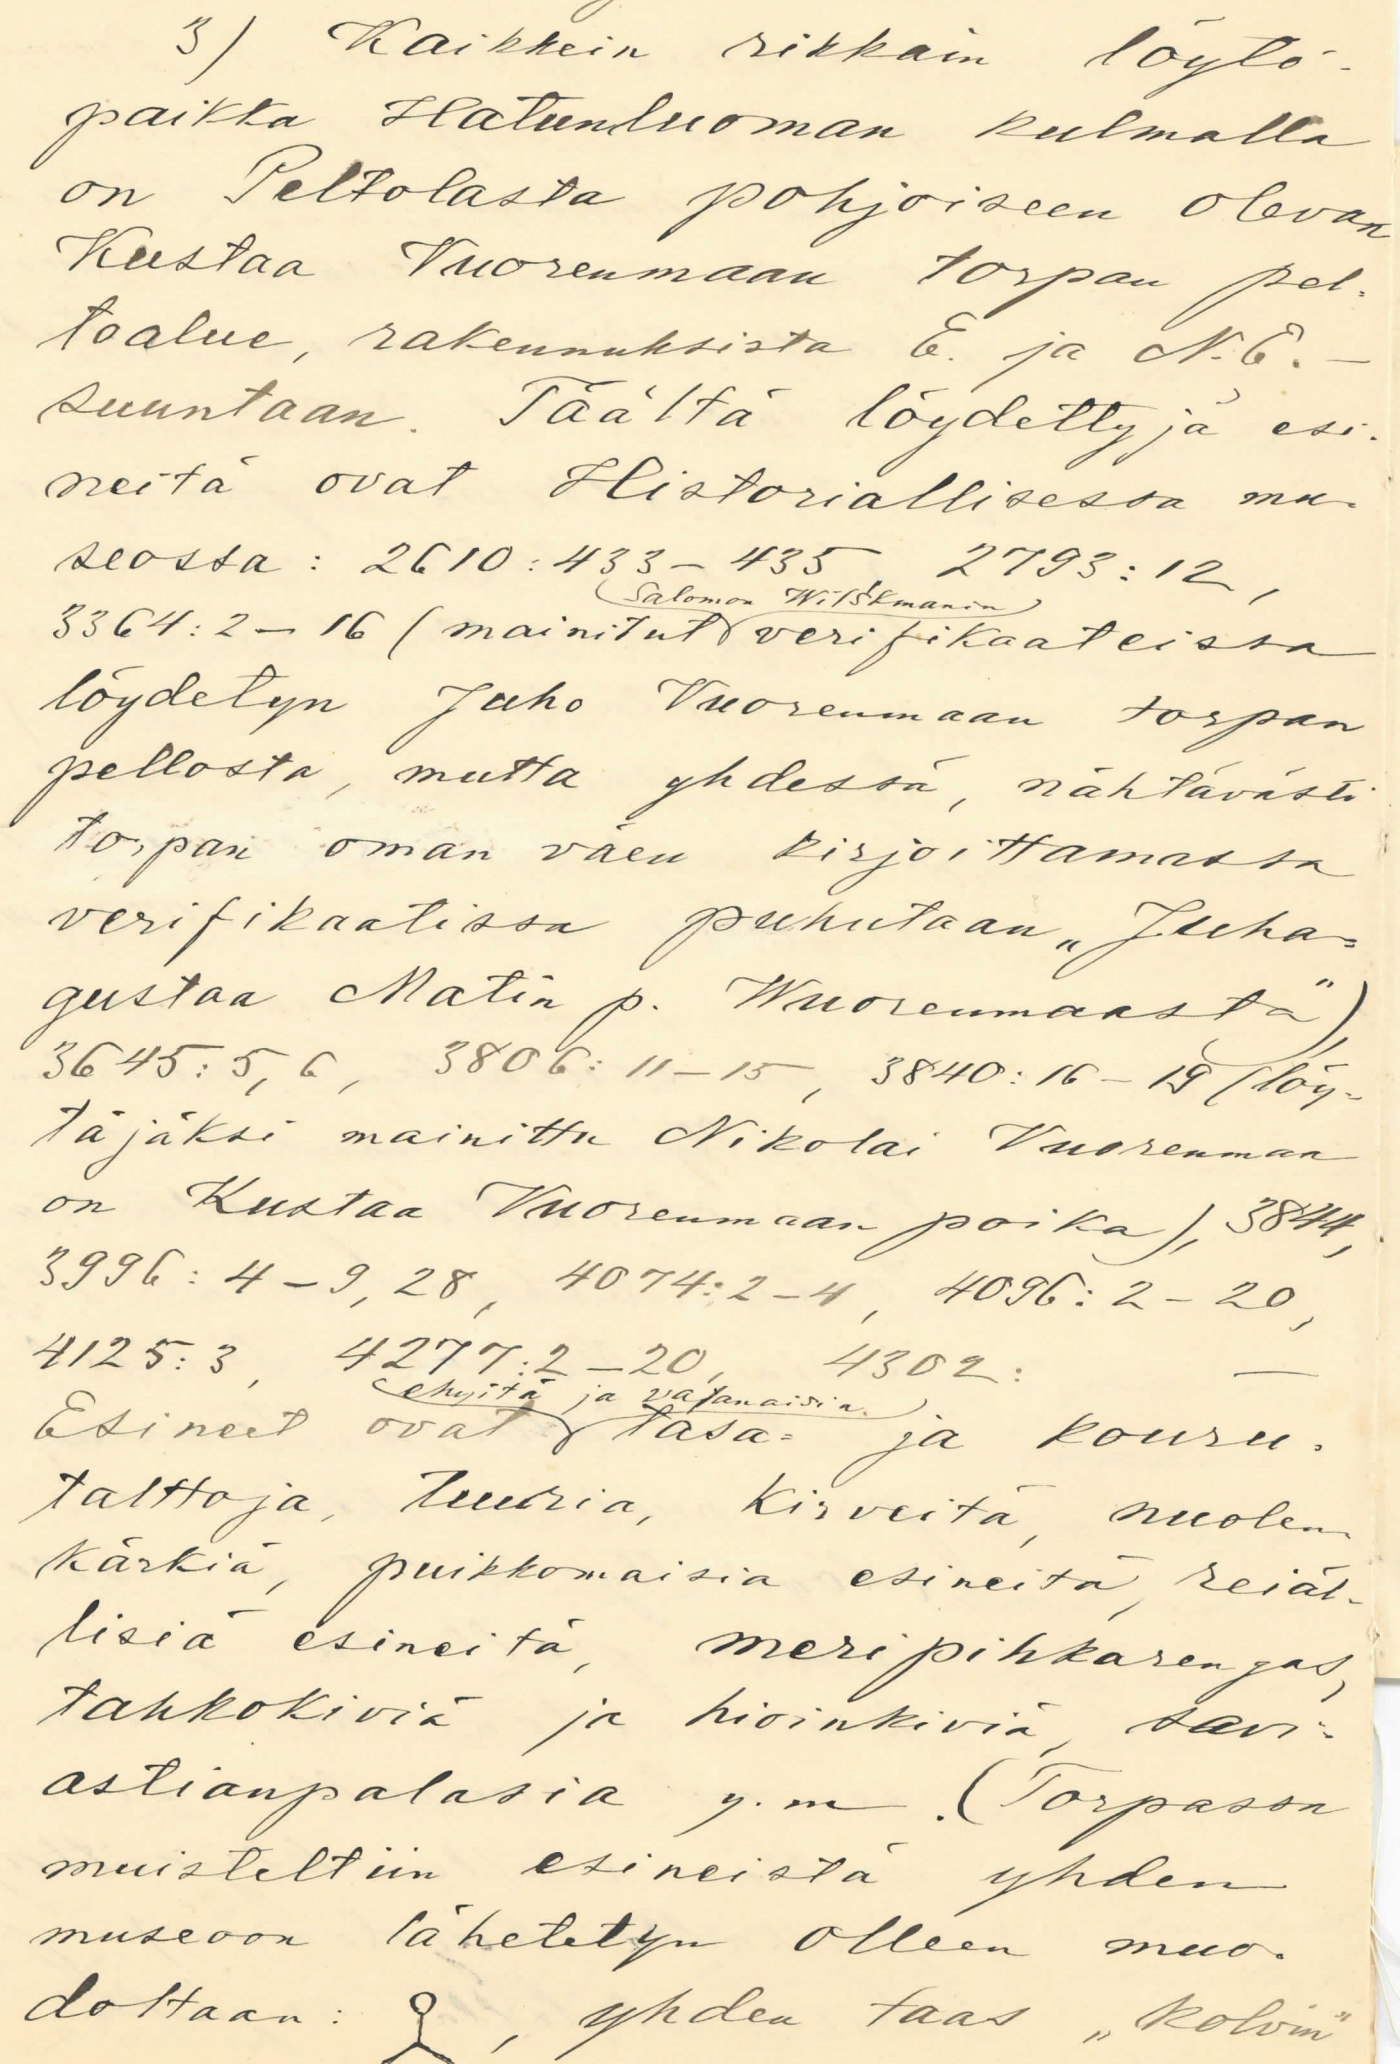 3) Kaikkein rikkain löytö-
paikka Hatunluoman kulmalla
on Peltolasta pohjoiseen olevan
Kustaa Vuorenmaan torpan pel-
toalue, rakennuksista E. ja N.E. –
suuntaan. Täältä löydettyjä esi-
neitä ovat Historiallisessa mu-
seossa: 2610:433–435 2793:12,
Salomon Wilskmanin
3364:2–16 (mainitut verifikaateissa
löydetyn Juho Vuorenmaan torpan
pellosta, mutta yhdessä, nähtävästi
torpan oman väen kirjoittamassa
verifikaatissa puhutaan „Juha=
gustaa Matin p. Wuorenmaasta"),
3645:5,6, 3806:11–15, 3840:16–19 (löy-
täjäksi mainittu Nikolai Vuorenmaa
on Kustaa Vuorenmaan poika), 3844,
3996:4–9,28, 4074:2–4, 4096:2–20,
4125:3, 4277:2–20, 4302: —
ehyitä ja vajanaisia
Esineet ovat tasa= ja kouru-
talttoja, tuuria, kirveitä, nuolen-
kärkiä, puikkomaisia esineitä, reiäl-
lisiä esineitä, meripihkarengas,
tahkokiviä ja hioinkiviä, savi=
astianpalasia y.m. (Torpassa
muisteltiin esineistä yhden
museoon lähetetyn olleen muo-
doltaan: , yhden taas „kolvin"